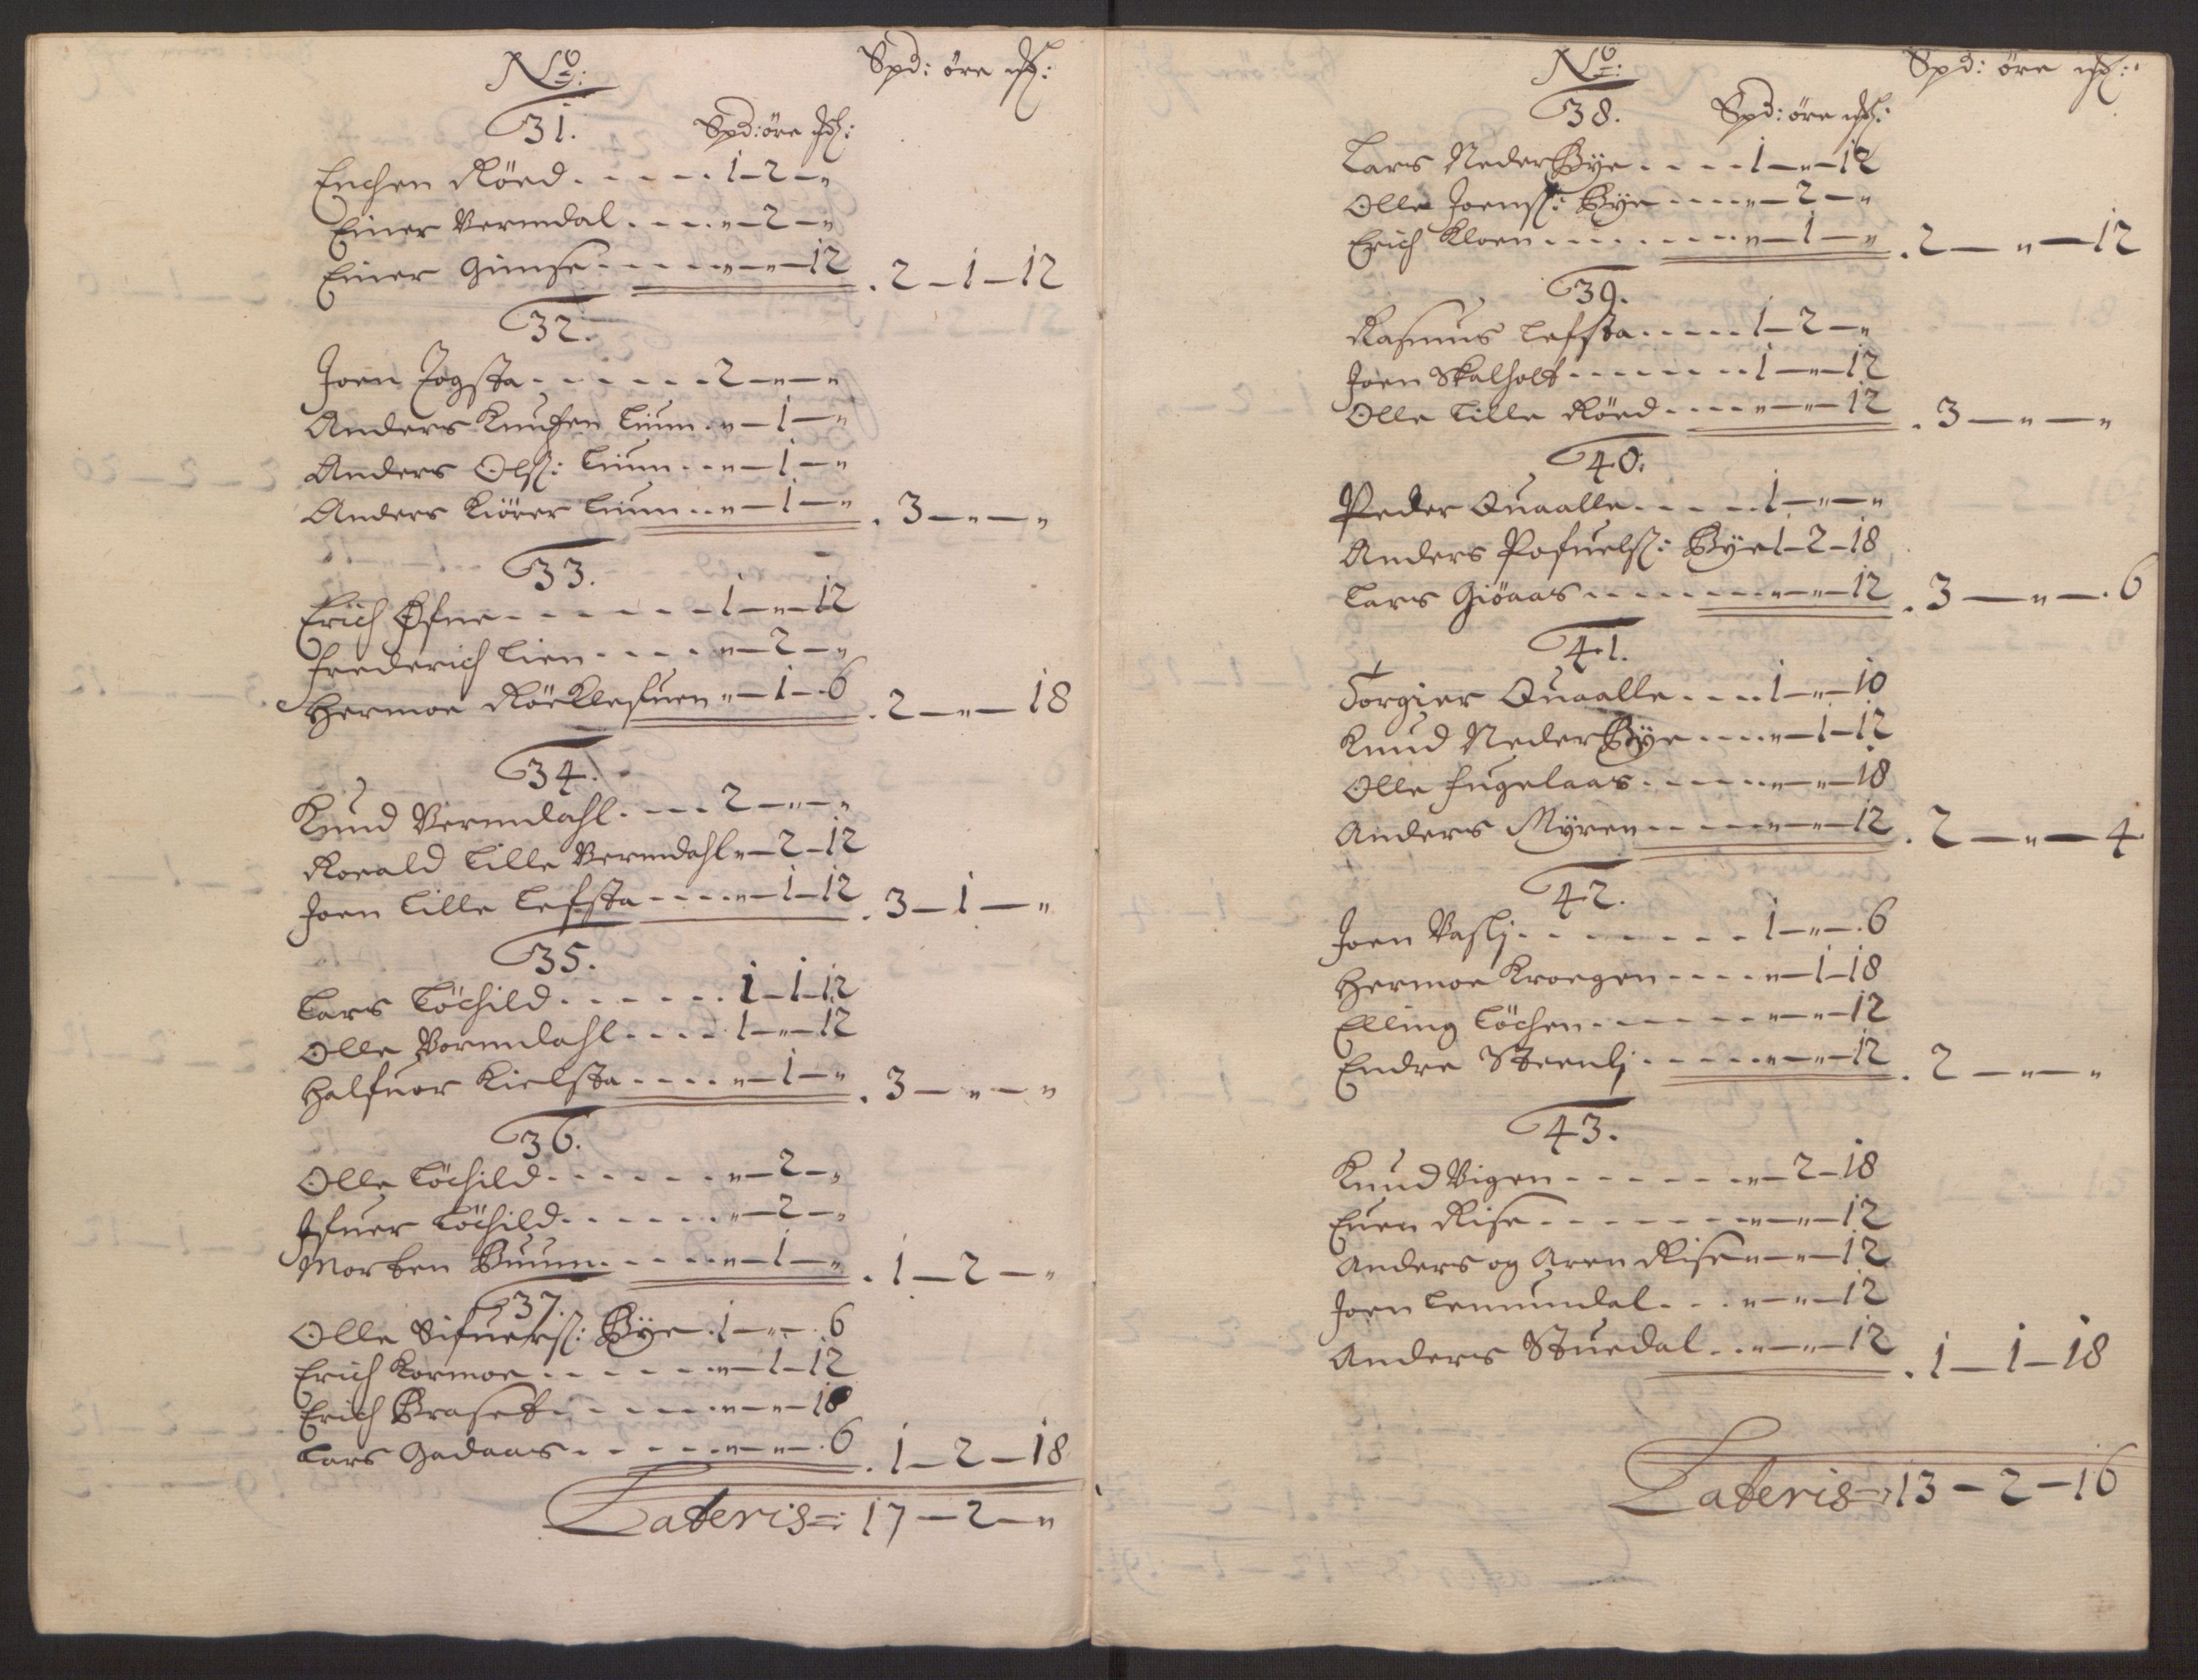 No:
Spd: øre ß:
31.
Spd: øre ß:
Enchen Röed - - - - - 1 - 2 - "
Einer Vermdal - - - - " - 2 - "
Einer Gimse - - - - - " - " - 12 . 2 - 1 - 12
32.
Joen Jogsta - - - - - - - 2 - " - "
Anders Knudsen Lium . " - 1 - "
Anders Olß: Lium - - " - 1 - "
Anders Kiörer Lium . . " - 1 - " . 3 - " - "
33.
Erich Øfne - - - - - - - 1 - " - 12
Frederich Lien - - - - " - 2 - "
Hermoe Röcklesuen " - 1 - 6 . 2 - " - 18
34.
Knud Vermdahl . - - - 2 - " - "
Roeald Lille Vermdahl " - 2 - 12
Joen Lille Lefsta - - - - " - 1 - 12 . 3 - 1 - "
35.
Lars Löchild . - - - - - . 1 - 1 - 12
Olle Vormdahl . - - - . 1 - " - 12
Halfuor Kielsta - - - - " - 1 - " . 3 - " - "
36.
Olle Löchild - - - - - - " - 2 - "
Jfuer Löchild - - - - - - " - 2 - "
Morten Buum - - - - - " - 1 - " . 1 - 2 - "
37.
Olle Sifuerß: Bÿe . 1 - " - 6
Erich Kormoe . - - - - - " - 1 - 12
Erich Braset - - - - - - " - " - 18
Lars Gadaas - - - - - - " - " - 6 . 1 - 2 - 18
Lateris =: 17 - 2 - "
No:
Spd: øre ß:
38.
Spd: øre ß:
Lars NederBÿe - - - - 1 - " - 12
Olle Joenß: Bÿe - - - - " - 2 - "
Erich Kloen - - - - - - - - " - 1 - " . 2 - " - 12
39.
Rasmus Lefsta - - - - - 1 - 2 - "
Joen Skalholt - - - - - - - 1 - " - 12
Olle Lille Röed - - - - " - " - 12 . 3 - " - "
40:
Peder Quaalle - - - - - 1 - " - "
Anders Pofuelß: Bÿe 1 - 2 - 18
Lars Giöaas - - - - - - - - " - " - 12 . 3 - " - 6
41.
Torgier Quaalle - - - - 1 - " - 10
Knud NederBÿe - - - - " - 1 - 12
Olle Fugelaas - - - - - - " - " - 18
Anders Mÿren - - - - - " - " - 12 . 2 - " - 4
42.
Joen Vaslj - - - - - - - - 1 - " - 6
Hermoe Kroegen - - - - " - 1 - 18
Elling Löchen - - - - - - " - " - 12
Endre Steenlj - - - - - " - " - 12 . 2 - " - "
43.
Knud Vigen - - - - - - " - 2 - 18
Euen Rise - - - - - - - " - " - 12
Anders og Aren Rise " - " - 12
Joen Lemundal - - - " - " - 12
Anders Stuedal - - " - " - 12 . 1 - 1 - 18
Lateris =: 13 - 2 - 16